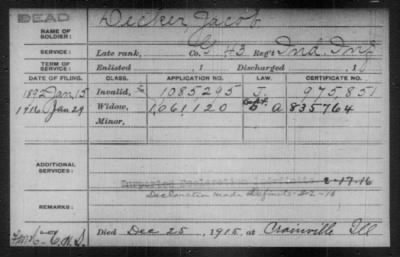 DEAD
NAME OF SOLDIER: Decker Jacob
SERVICE: Late rank, Co. G 43 Reg't Ind. Inf
TERM OF SERVICE: Enlisted , 1 Discharged , 1
DATE OF FILING. CLASS. APPLICATION NO. LAW. CERTIFICATE NO.
1892 Jan 15 Invalid, 1085295 J. 975,851
1916 Jan 29 Widow, 1,061,120 A 835764
Minor,
ADDITIONAL SERVICES:
2-17-16
Declaration made Definite 2-2-16
REMARKS:
Died Dec 25, 1915, at Crainville Ill